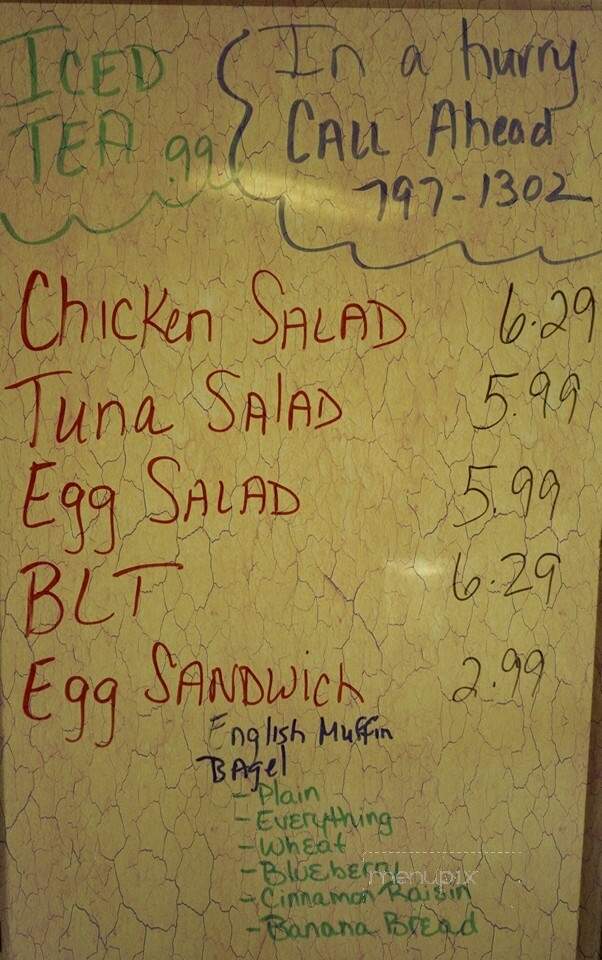 ICED
TEA .99
In a hurry
CALL Ahead
797-1302
Chicken SALAD 6.29
Tuna SALAD 5.99
Egg SALAD 5.99
BLT 6.29
Egg SANDWich 2.99
English Muffin
BAgel
- Plain
- Everything
- Wheat
- Blueberry
- Cinnamon Raisin
- Banana Bread
menupix